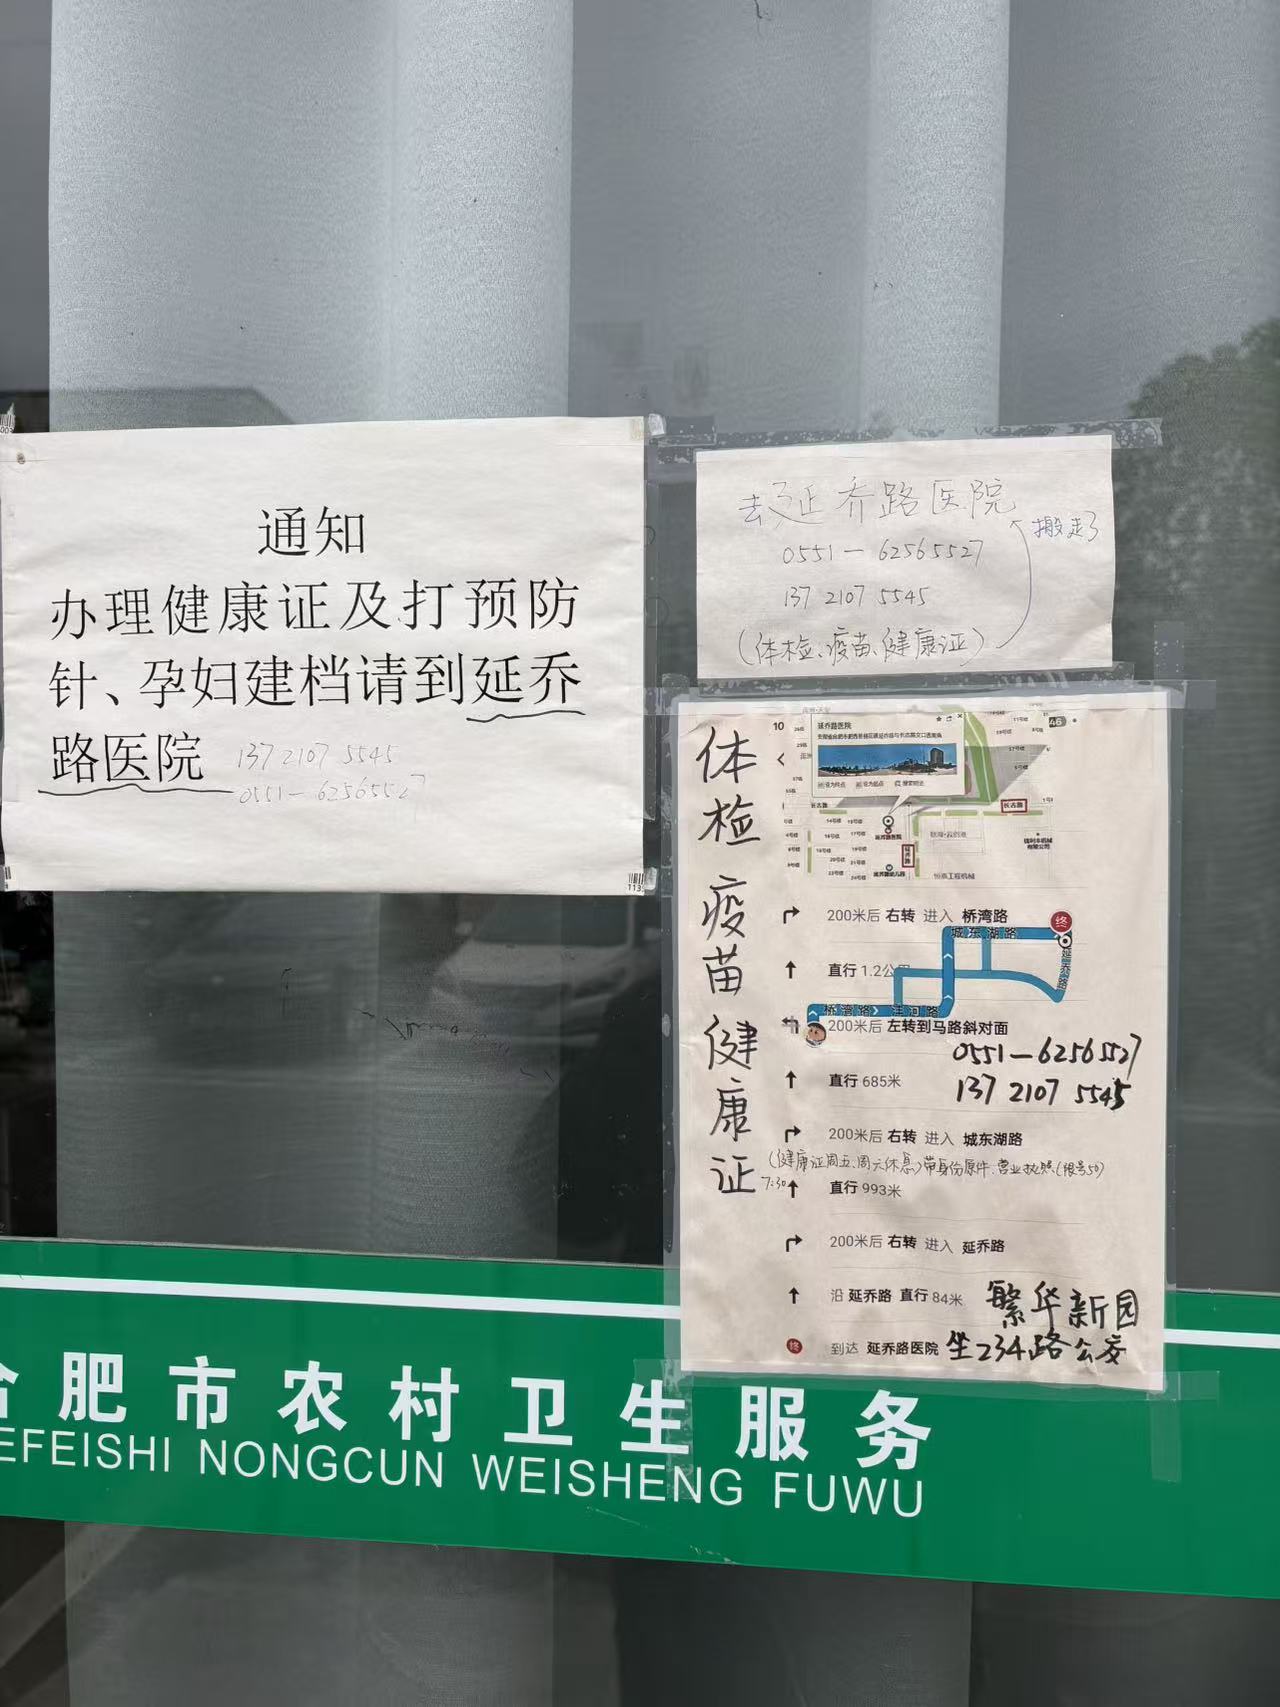 通知
办理健康证及打预防
针、孕妇建档请到延乔
路医院
137 2107 5545
0551-62565527
去延乔路医院
搬走了
0551-62565527
137 2107 5545
(体检、疫苗、健康证)
体检 疫苗 健康证
10
46
延乔路医院
设为终点
设为起点
搜索附近
长古路
长古路
延乔路医院
延乔路
恒泰工程机械
200米后 右转 进入 桥湾路
终
城东湖路
延乔路
直行 1.2公
桥湾路
200米后 左转到马路斜对面
0551-62565527
直行 685米
137 2107 5545
200米后 右转 进入 城东湖路
(健康证周五、周六休息)带身份原件、营业执照
7:30
直行 993米
200米后 右转 进入 延乔路
沿 延乔路 直行 84米
繁华新园
终 到达 延乔路医院
坐234路公交
合肥市农村卫生服务
EFEISHI NONGCUN WEISHENG FUWU